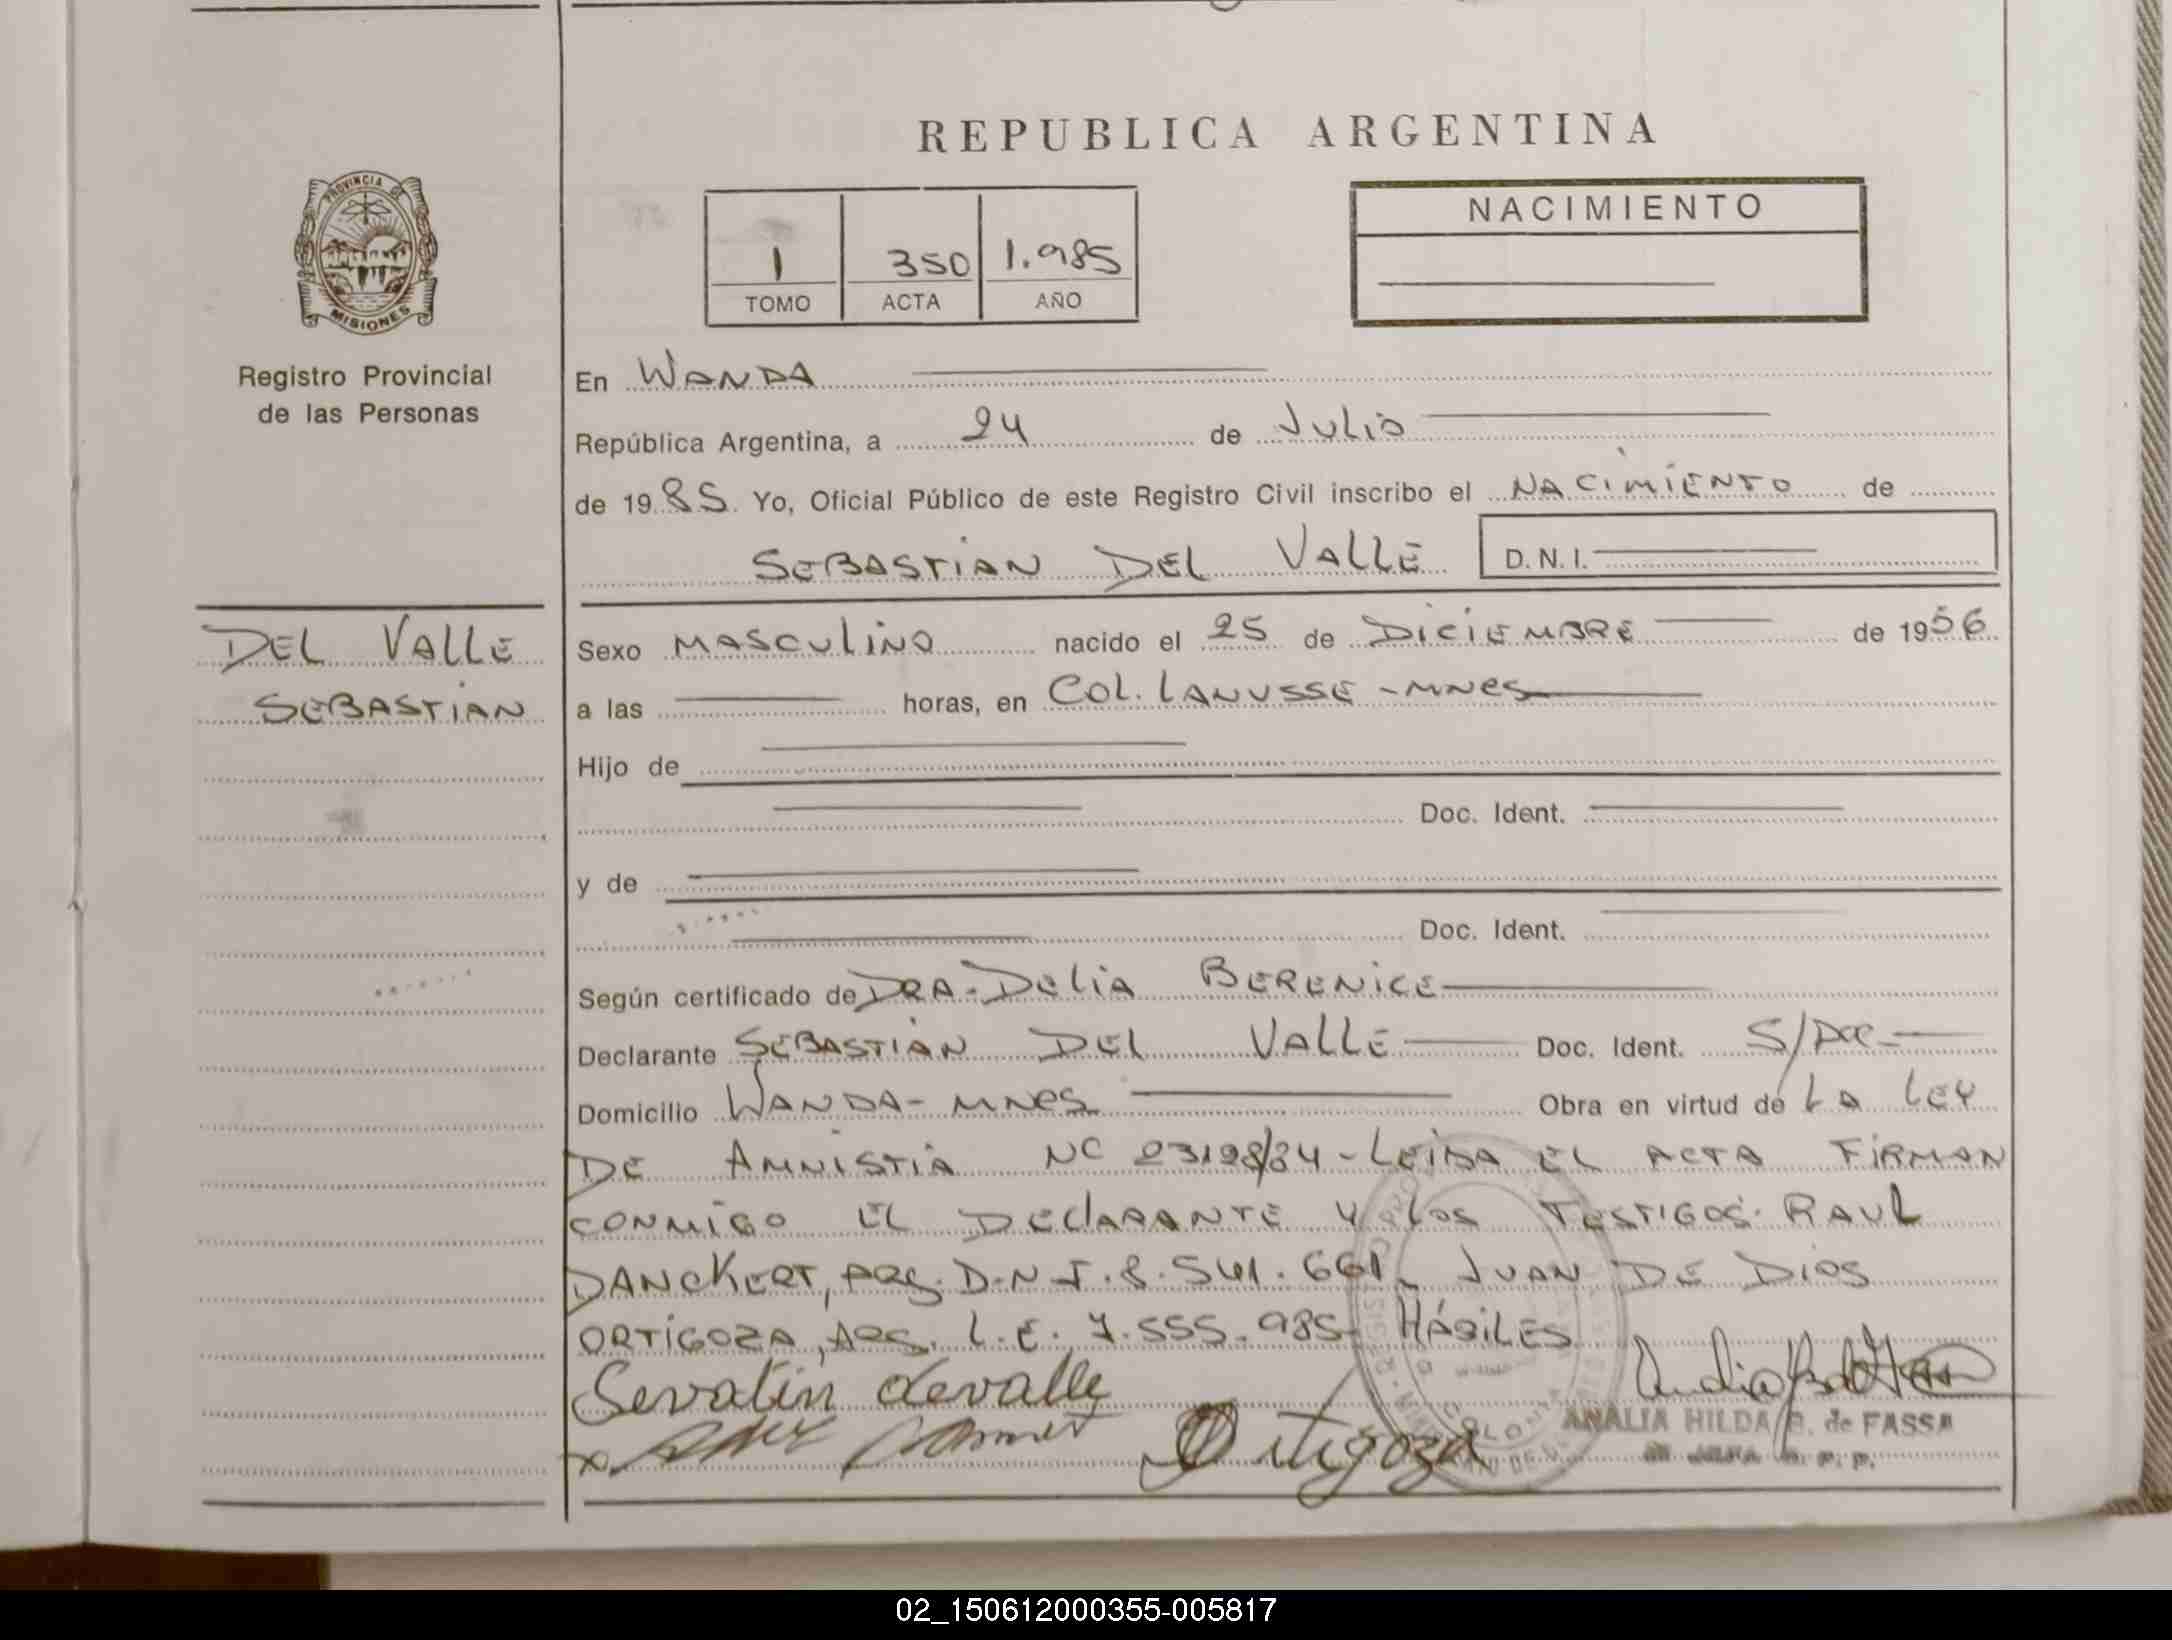 REPUBLICA ARGENTINA
PROVINCIA DE
MISIONES
Registro Provincial
de las Personas
1 350 1.985
TOMO ACTA AÑO
NACIMIENTO
En WANDA
República Argentina, a 24 de JULIO
de 1985 Yo, Oficial Público de este Registro Civil inscribo el NACIMIENTO de
SEBASTIAN DEL VALLE D.N.I.
DEL VALLE
SEBASTIAN
Sexo MASCULINO nacido el 25 de DICIEMBRE de 1956
a las horas, en COL. LANUSSE - MNES
Hijo de
Doc. Ident.
y de
Doc. Ident.
Según certificado de DRA. DELIA BERENICE
Declarante SEBASTIAN DEL VALLE Doc. Ident. S/DOC-
Domicilio WANDA - MNES Obra en virtud de LA LEY
DE AMNISTIA NC 23198/84 - LEIDA EL ACTA FIRMAN
CONMIGO EL DECLARANTE Y LOS TESTIGOS: RAUL
DANCKERT, ARG. D.N.I. 8.541.661. JUAN DE DIOS
ORTIGOZA, ARG. L.E. 7.555.985- HÁBILES
Sevatin devalle
Ortigoza
ANALIA HILDA B. de FASSA
02_150612000355-005817